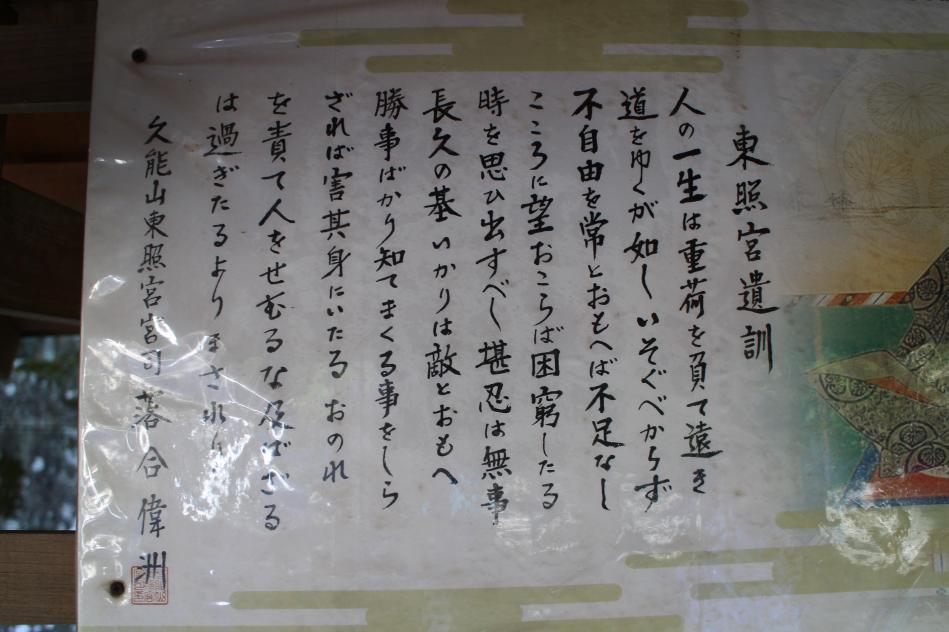 東照宮遺訓
人の一生は重荷を負て遠き
道をゆくが如し いそぐべからず
不自由を常とおもへば不足なし
こころに望おこらば困窮したる
時を思ひ出すべし 堪忍は無事
長久の基 いかりは敵とおもへ
勝事ばかり知てまくる事をしら
ざれば害其身にいたる おのれ
を責て人をせむるな 及ばざる
は過ぎたるよりまされり
久能山東照宮宮司 落合偉洲